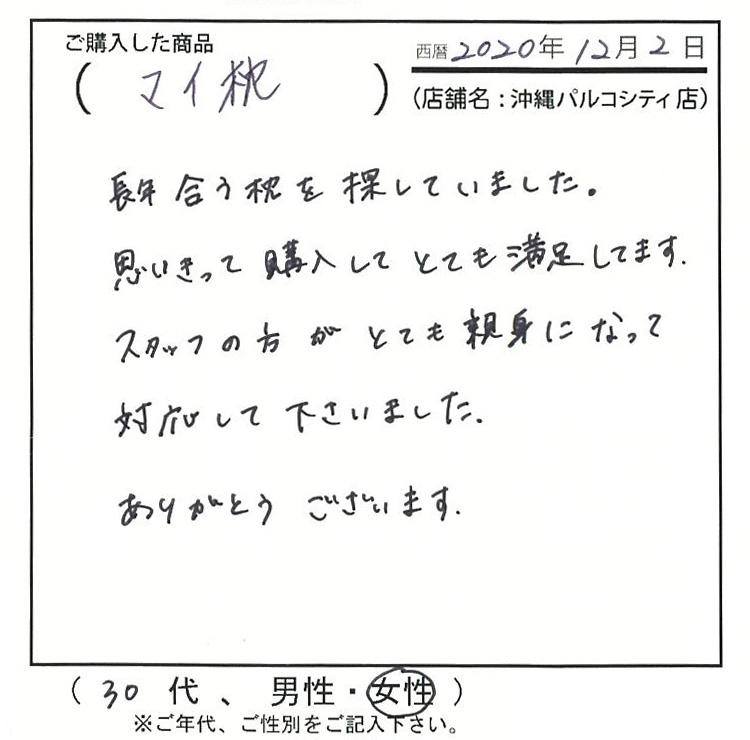 ご購入した商品
西暦2020年12月2日
(マイ枕)
(店舗名:沖縄パルコシティ店)
長年合う枕を探していました。
思いきって購入してとても満足してます.
スタッフの方がとても親身になって
対応して下さいました.
ありがとうございます.
(30代、男性・女性)
※ご年代、ご性別をご記入下さい。